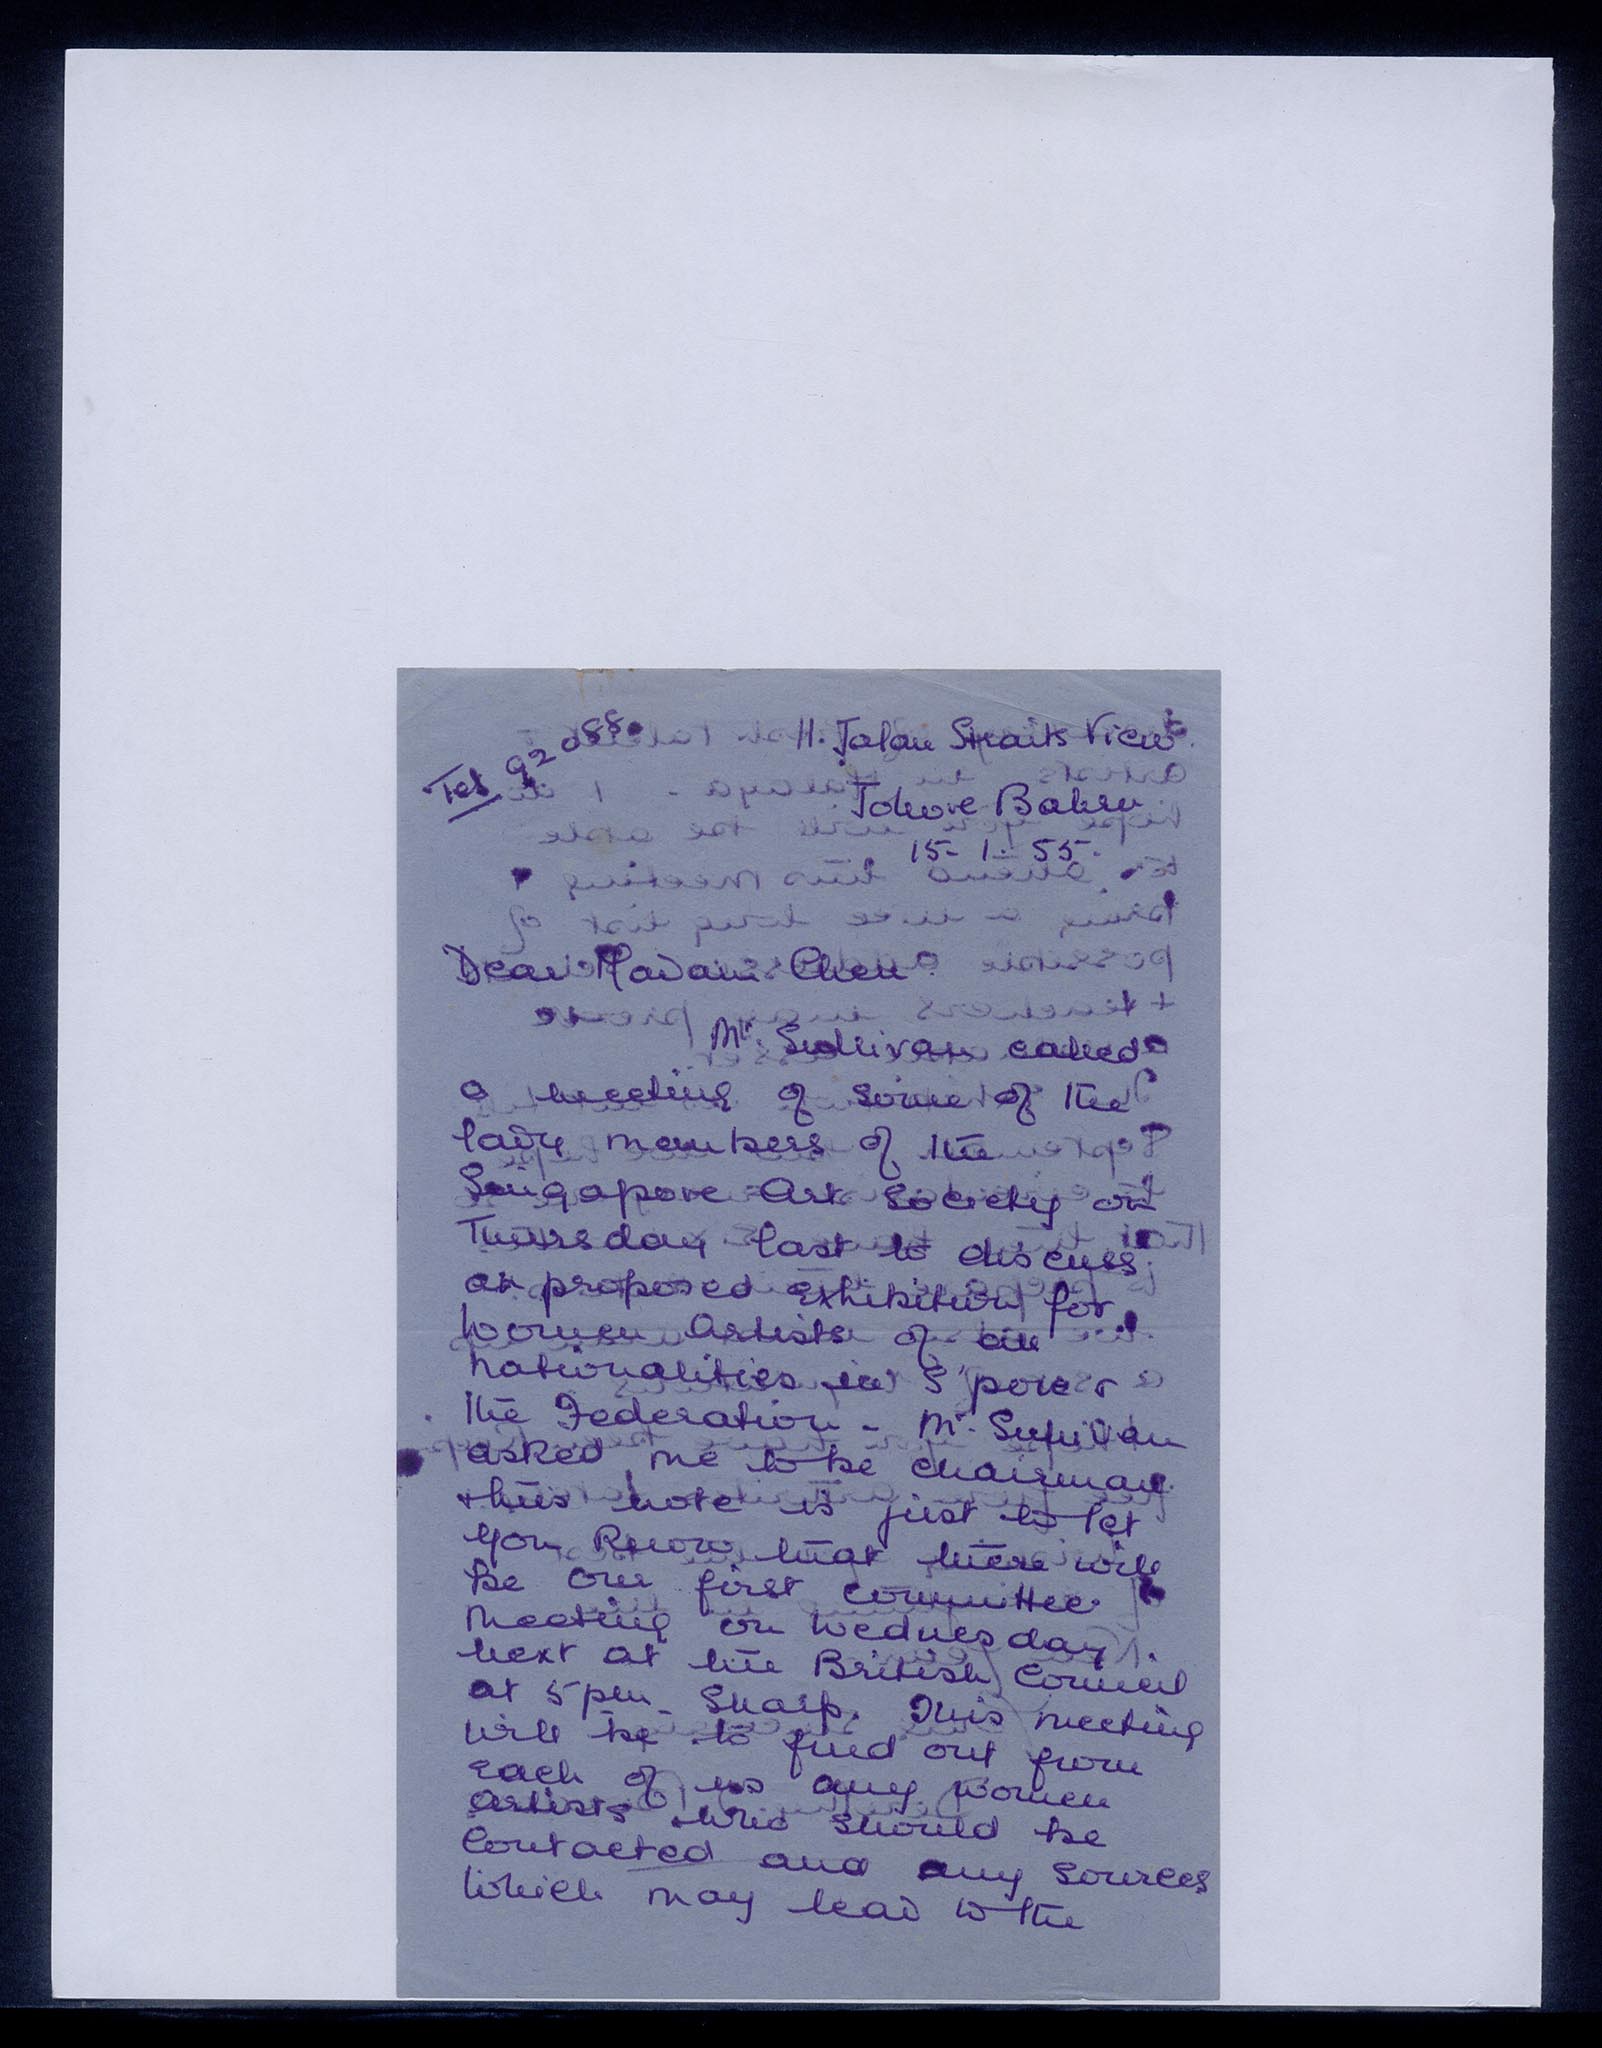 Tel 92088.
11. Jalan Straits View
Johore Bahru
15-1-55.
Dear Madam Chen
Mr. Sullivan called
a meeting of some of the
lady members of the
Singapore Art Society on
Thursday last to discuss
a proposed Exhibition for
Women Artists of all
nationalities in S'pore +
the Federation - Mr. Sullivan
asked me to be chairman
+ this note is just to let
you know that there will
be our first committee
meeting on Wednesday
next at the British Council
at 5pm sharp. This meeting
will be to find out from
each of us any women
artists who should be
contacted and any sources
which may lead to the